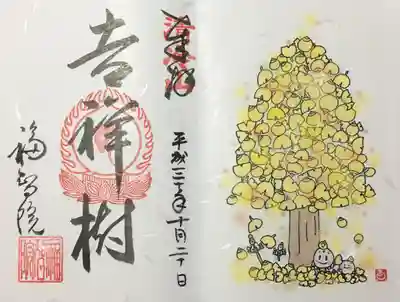 奉拝
平成三十年十月二十日
吉祥樹
福智院